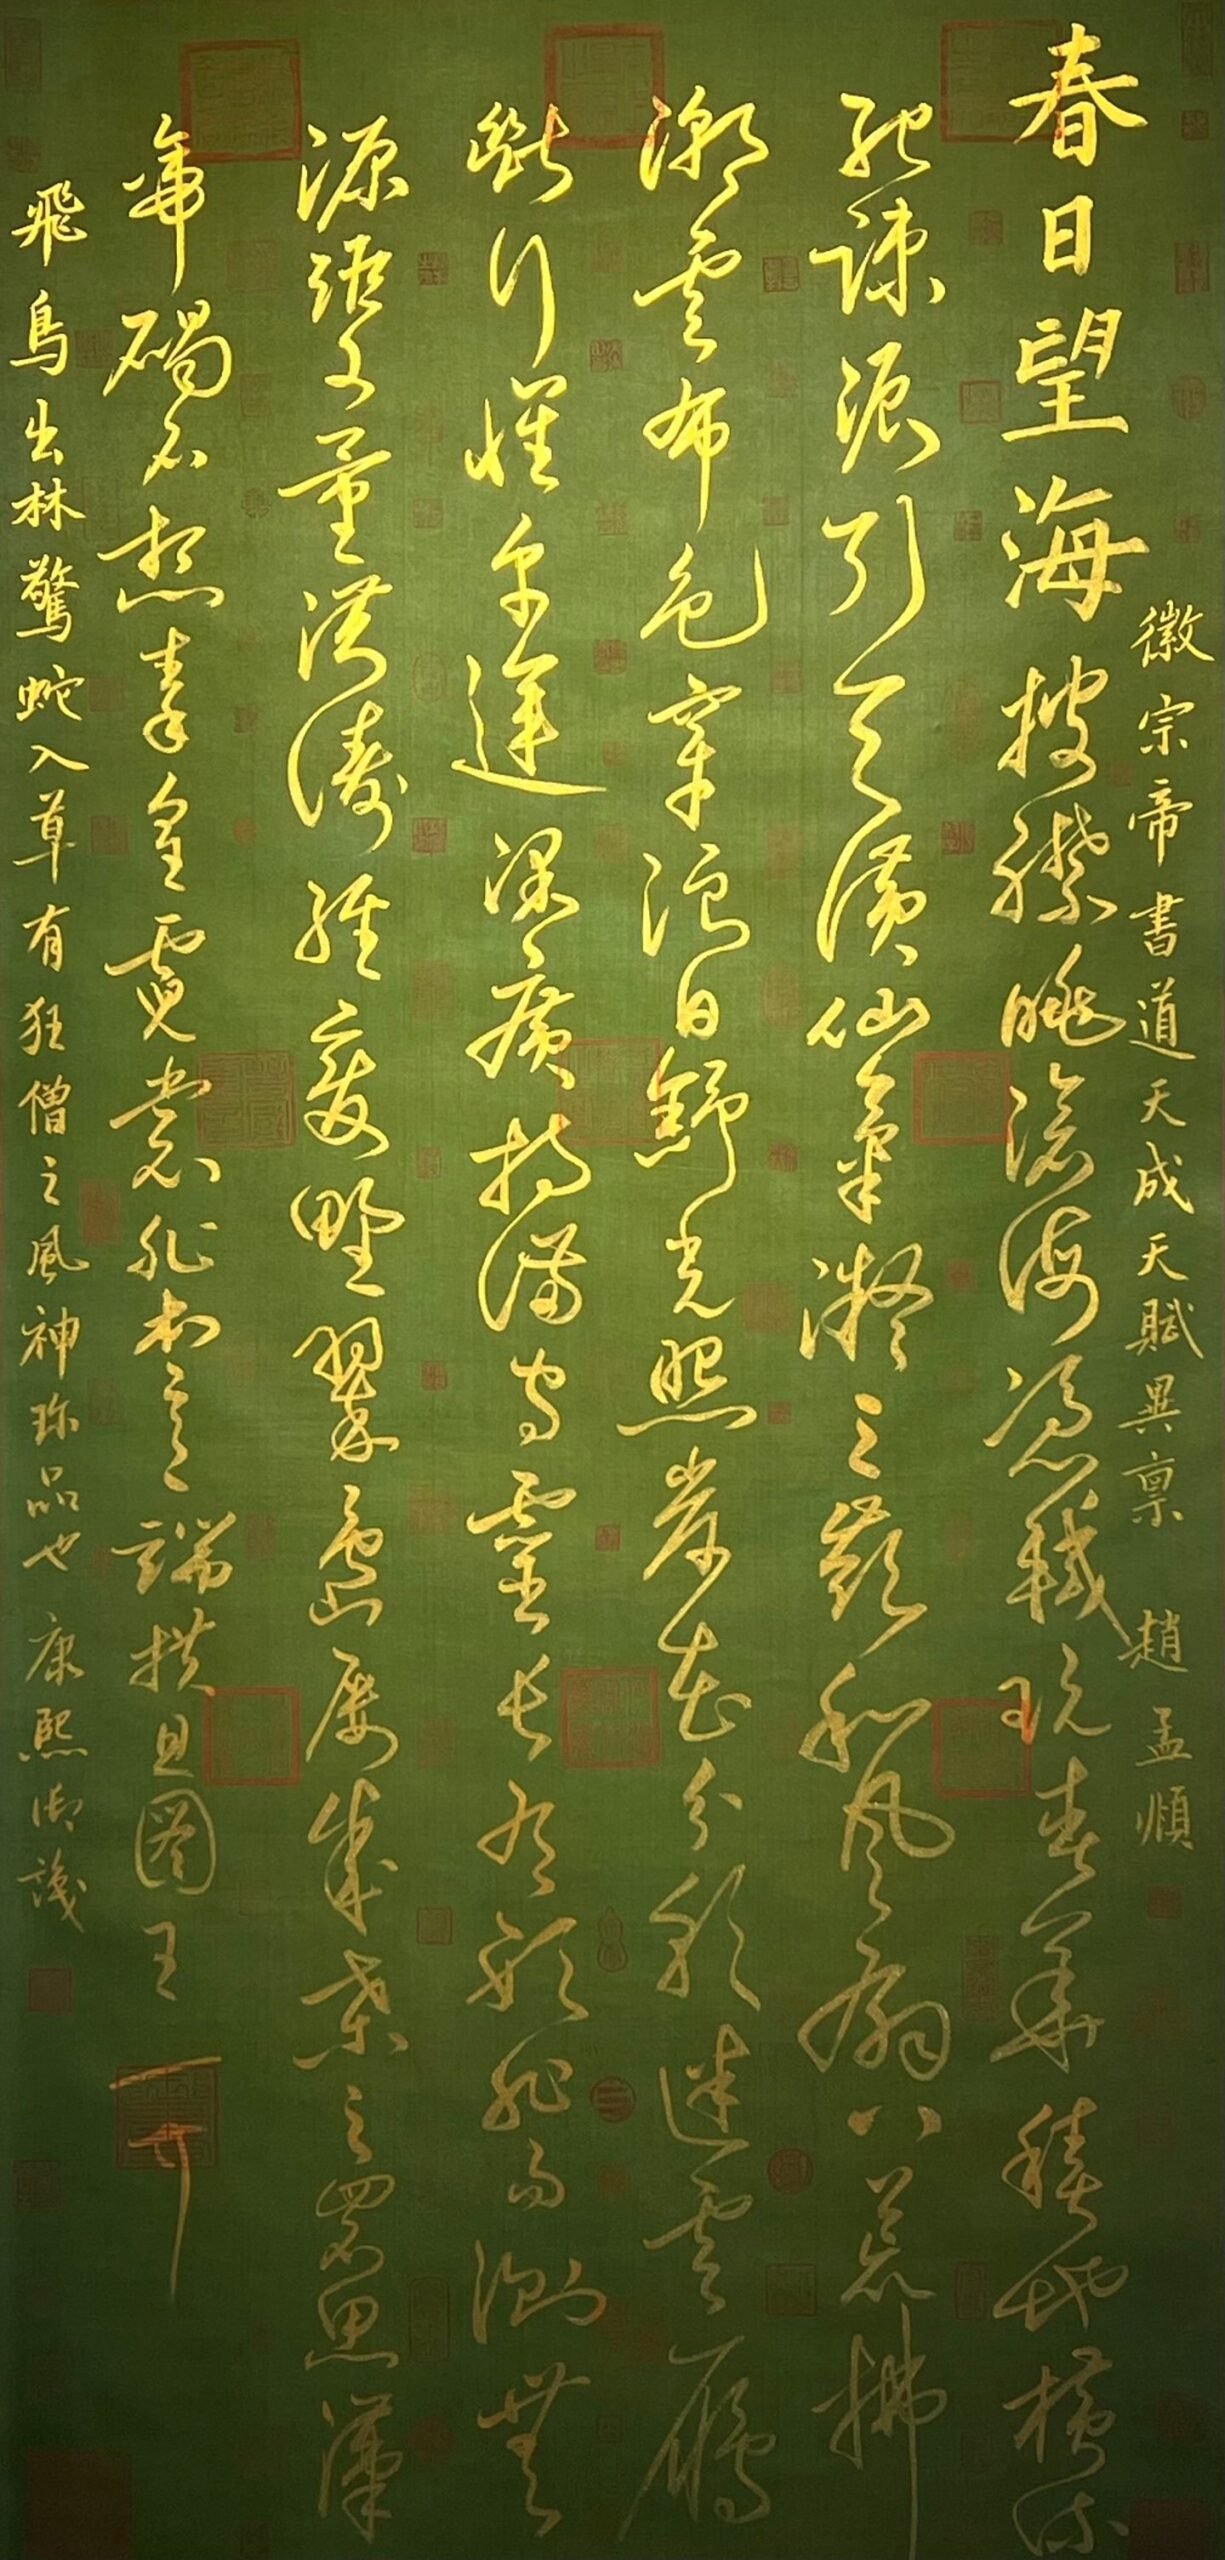 徽宗帝書道天成天賦異禀 趙孟頫
春日望海 披襟眺滄海憑軾玩春華積地橫流
紀疎派引天潢仙氣凝三嶺和風扇八荒拂
潮雲布色穿浪日舒光照岸花分彩迷雲雁
斷行懷卑運深廣持滿守靈長有形非易測無
源詎可量洪濤經變野翠島屢成桑之罘思漢
帝碣石想秦皇霓裳非本意端拱且圖王
飛鳥出林驚蛇入草有狂僧之風神珎品也 康熙御識